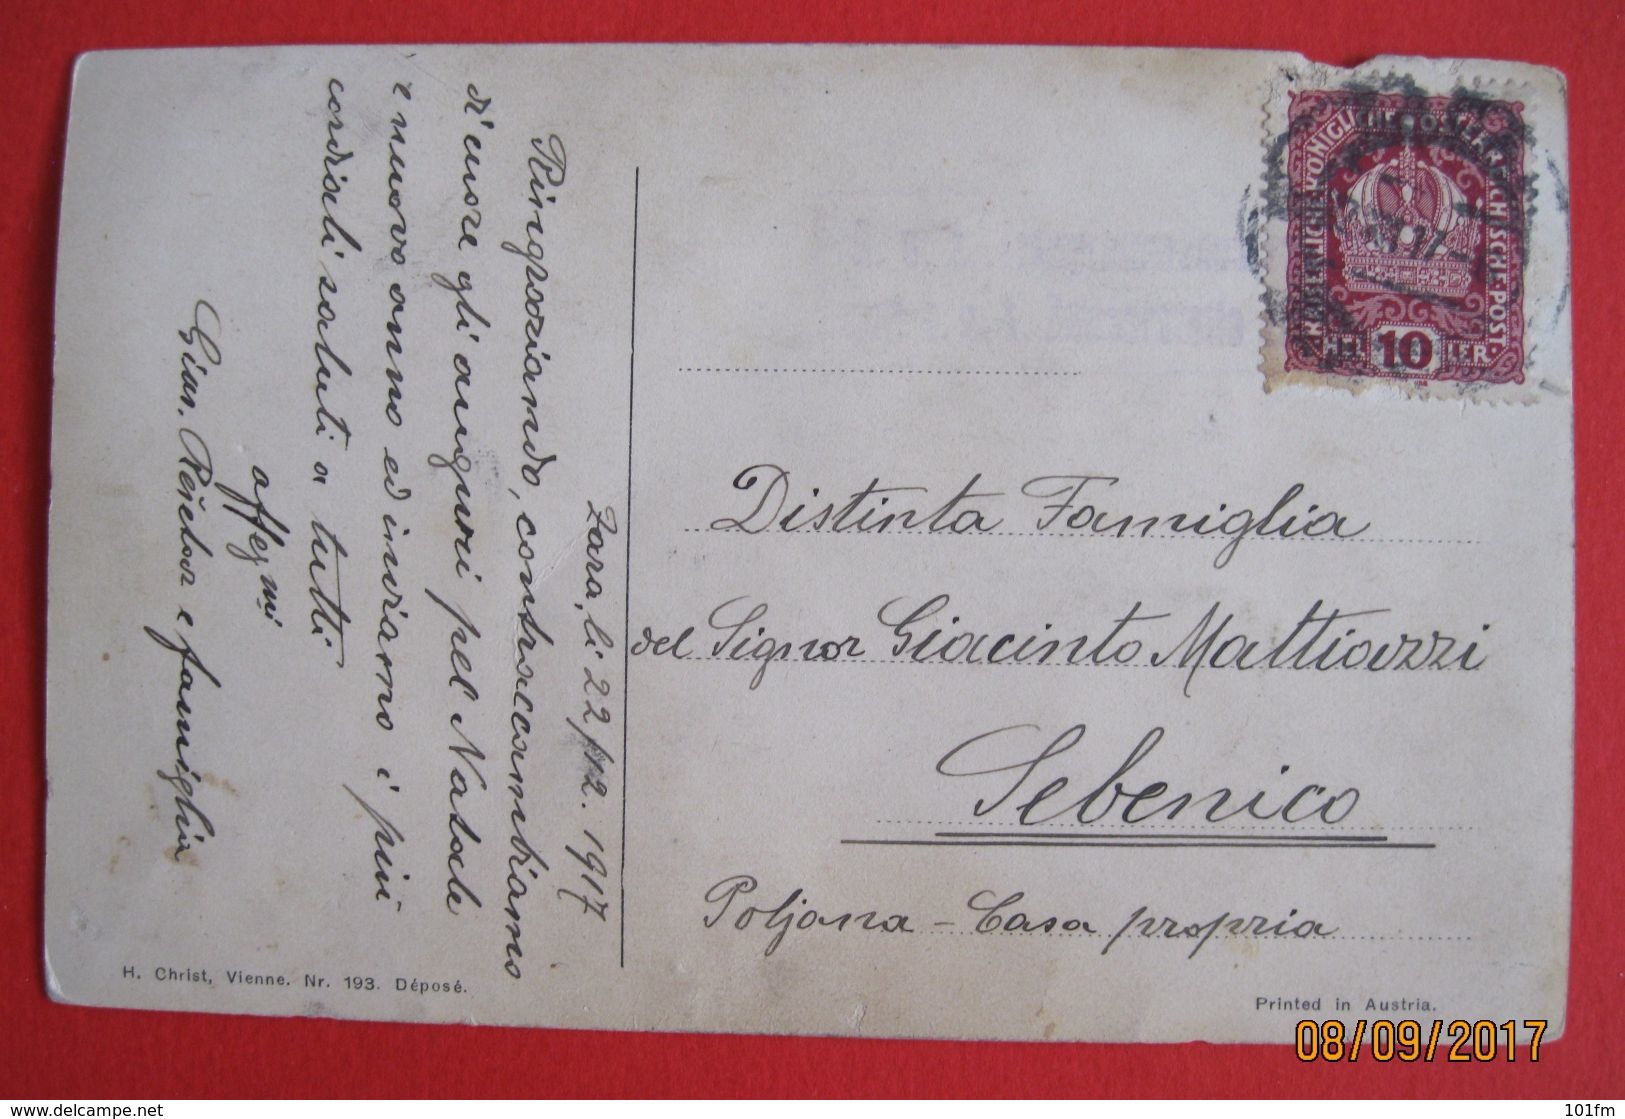 Zara, li 22/12. 1917
Ringraziando, contraccambiamo
di cuore gli auguri pel Natale
e nuovo anno ed inviamo i più
cordiali saluti a tutti.
affezmi
Gian. e famiglia
KAISERLICHE KÖNIGLICHE ÖSTERREICHISCHE POST
HELLER
10
Distinta Famiglia
del Signor Giacinto Mattiazzi
Sebenico
Poljana - Casa propria
H. Christ, Vienne. Nr. 193. Déposé.
Printed in Austria.
08/09/2017
www.delcampe.net
101fm